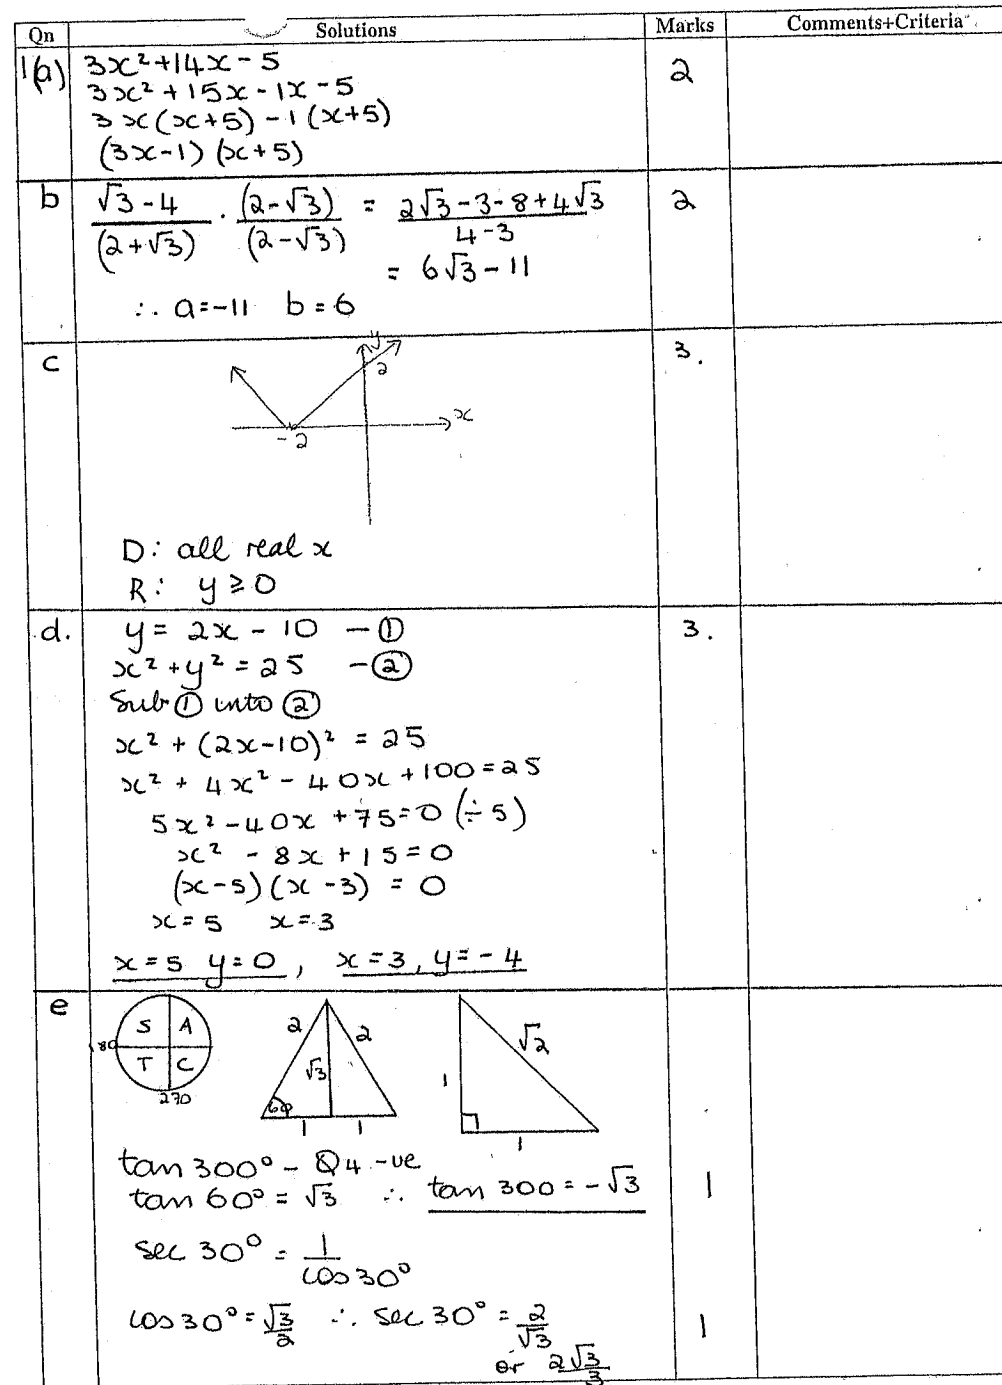 Qn Solutions Marks Comments+Criteria
1(a) 3x²+14x-5 2
3x²+15x-1x-5
3x(x+5)-1(x+5)
(3x-1)(x+5)
b (√3-4)/(2+√3) · (2-√3)/(2-√3) = (2√3-3-8+4√3)/(4-3) 2
= 6√3-11
∴ a=-11 b=6
c 3.
y
2
x
-2
D: all real x
R: y ≥ 0
d. y = 2x - 10 - ① 3.
x²+y² = 25 - ②
Sub ① into ②
x² + (2x-10)² = 25
x² + 4x² - 40x + 100 = 25
5x² - 40x + 75 = 0 (÷5)
x² - 8x + 15 = 0
(x-5)(x-3) = 0
x = 5 x = 3
x = 5 y = 0, x = 3, y = -4
e
S A
180
T C
270
2 2 √3 60 1 1
√2 1 1
tan 300° - Q4 -ve
tan 60° = √3 ∴ tan 300 = -√3 1
sec 30° = 1/cos30°
cos30° = √3/2 ∴ sec 30° = 2/√3 1
or 2√3/3